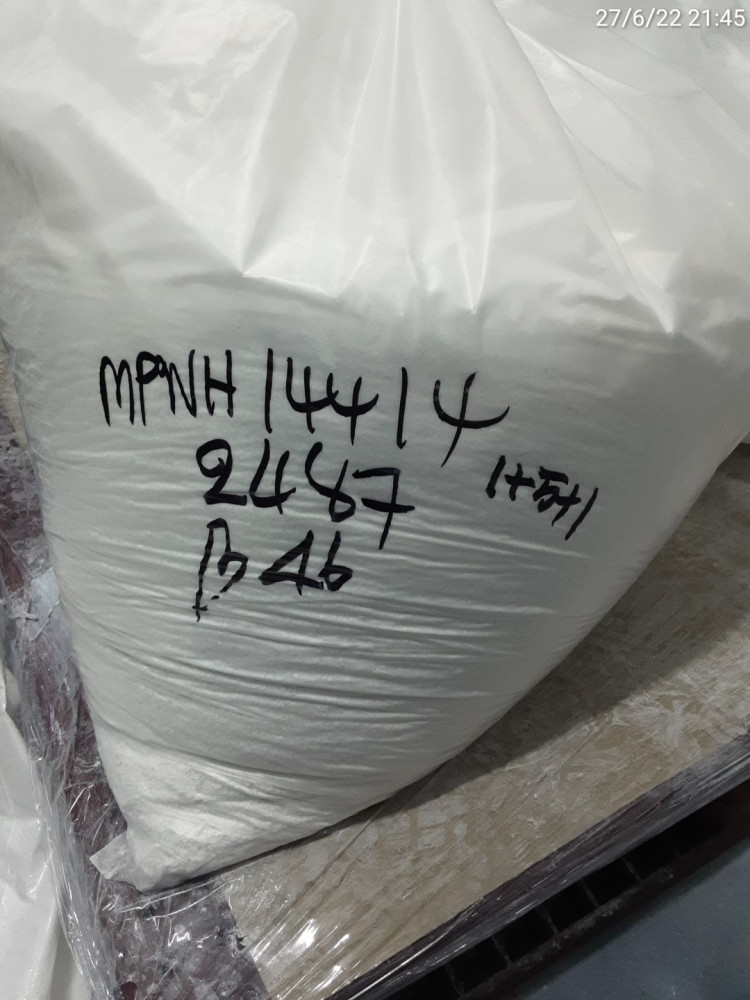 27/6/22 21:45
MPNH 14414
2487
1+5+1
B 46